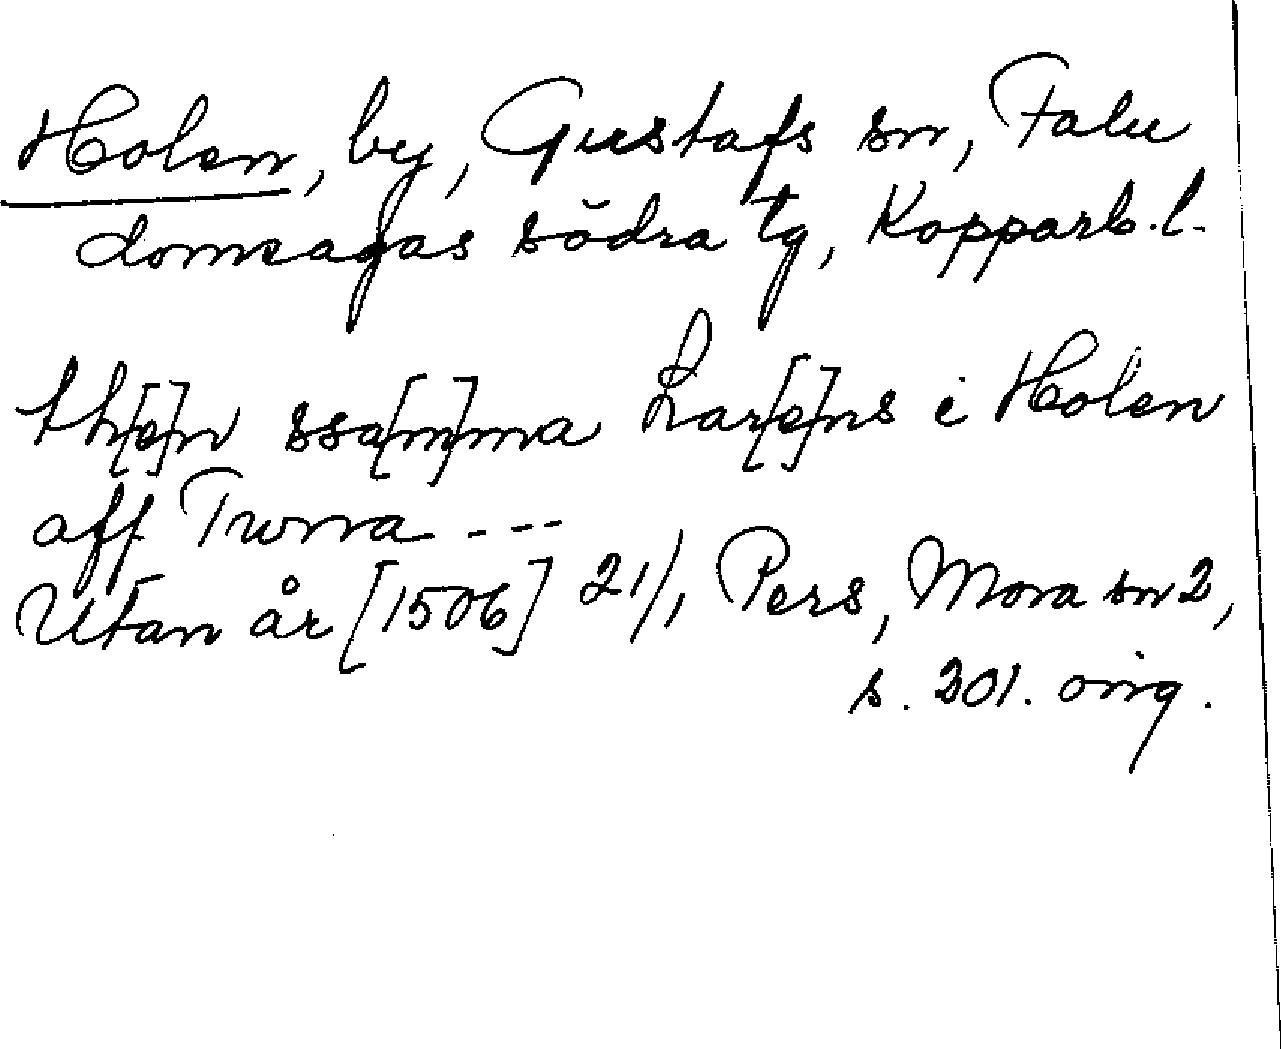 Holen, by, Gustafs sn, Falu
domsagas södra tg, Kopparb. l.
th[e]n ssa[m]ma Lar[e]ns i Holen
aff Twna ---
Utan år [1506] 21/1 Pers, Mora sn 2,
s. 201. orig.